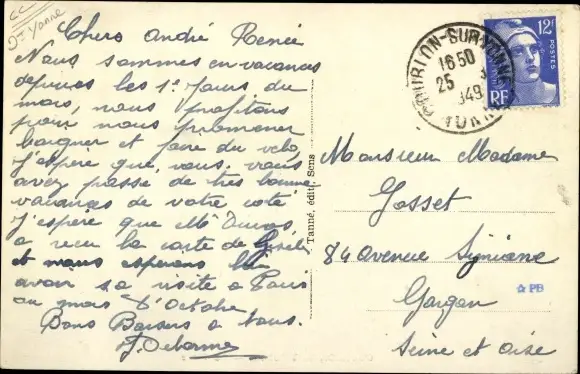 St Yonne
Chers André Renée
Nous sommes en vacances
depuis les 1er jours du
mois, nous profitons
pour nous promener
baigner et faire du velo
J'espère que vous vous
avez passé de très bonne
vacances de votre coté
J'espère que Mr
a recu la carte de Gisèle
et nous esperons
avoir sa visite a Paris
au mois d'Octobre
Bons Baisers a tous.
J. Delorme
Tanné, édit. Sens
SUR-YONNE
1650
25
949
YONNE
12F
POSTES
RF
Monsieur Madame
Gosset
84 avenue
Gargan
Seine et Oise
PB